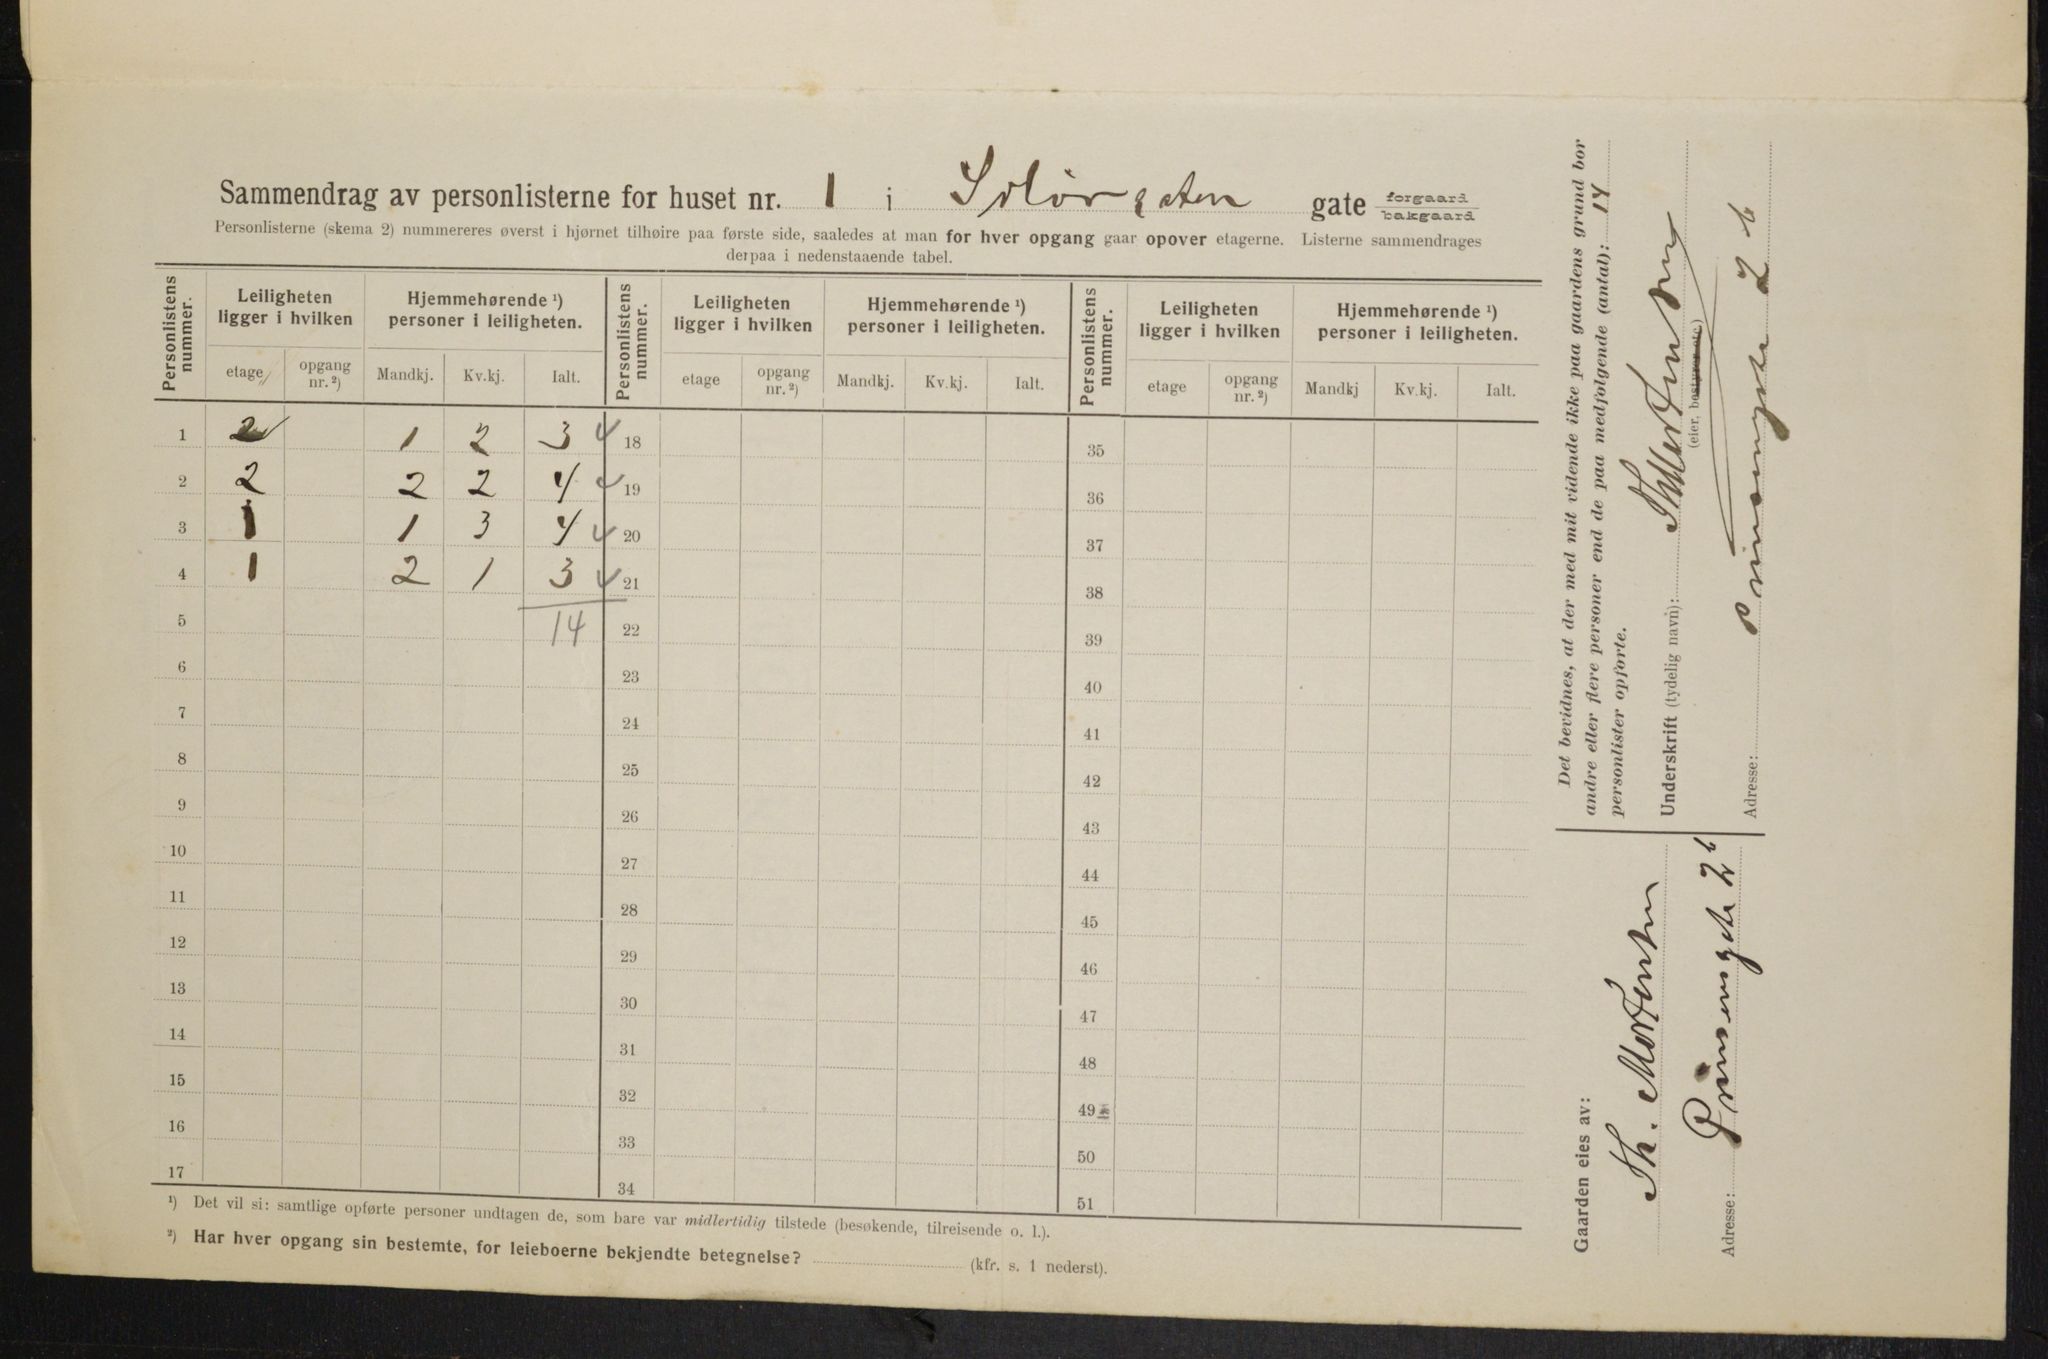 Sammendrag av personlisterne for huset nr. 1 i Solørgaten gate forgaard bakgaard
Personlisterne (skema 2) nummereres øverst i hjørnet tilhøire paa første side, saaledes at man for hver opgang gaar opover etagerne. Listerne sammendrages
derpaa i nedenstaaende tabel.
Personlistens nummer. Leiligheten ligger i hvilken Hjemmehørende ¹) personer i leiligheten. Personlistens nummer. Leiligheten ligger i hvilken Hjemmehørende ¹) personer i leiligheten. Personlistens nummer. Leiligheten ligger i hvilken Hjemmehørende ¹) personer i leiligheten.
etage opgang nr. ²) Mandkj. Kv.kj. Ialt. etage opgang nr. ²) Mandkj. Kv.kj. Ialt. etage opgang nr. ²) Mandkj Kv.kj. Ialt.
1 2 1 2 3 18 35
2 2 2 2 4 19 36
3 1 1 3 4 20 37
4 1 2 1 3 21 38
5 14 22 39
6 23 40
7 24 41
8 25 42
9 26 43
10 27 44
11 28 45
12 29 46
13 30 47
14 31 48
15 32 49
16 33 50
17 34 51
¹) Det vil si: samtlige opførte personer undtagen de, som bare var midlertidig tilstede (besøkende, tilreisende o. l.).
²) Har hver opgang sin bestemte, for leieboerne bekjendte betegnelse? (kfr. s. 1 nederst).
Det bevidnes, at der med mit vidende ikke paa gaardens grund bor
andre eller flere personer end de paa medfølgende (antal): 14
personlister opførte.
Underskrift (tydelig navn): Th Mortensen
(eier, bestyrer etc.)
Adresse: Prinsensgte 2 b
Gaarden eies av:
Th. Mortensen
Adresse: Prinsensgte 2 b